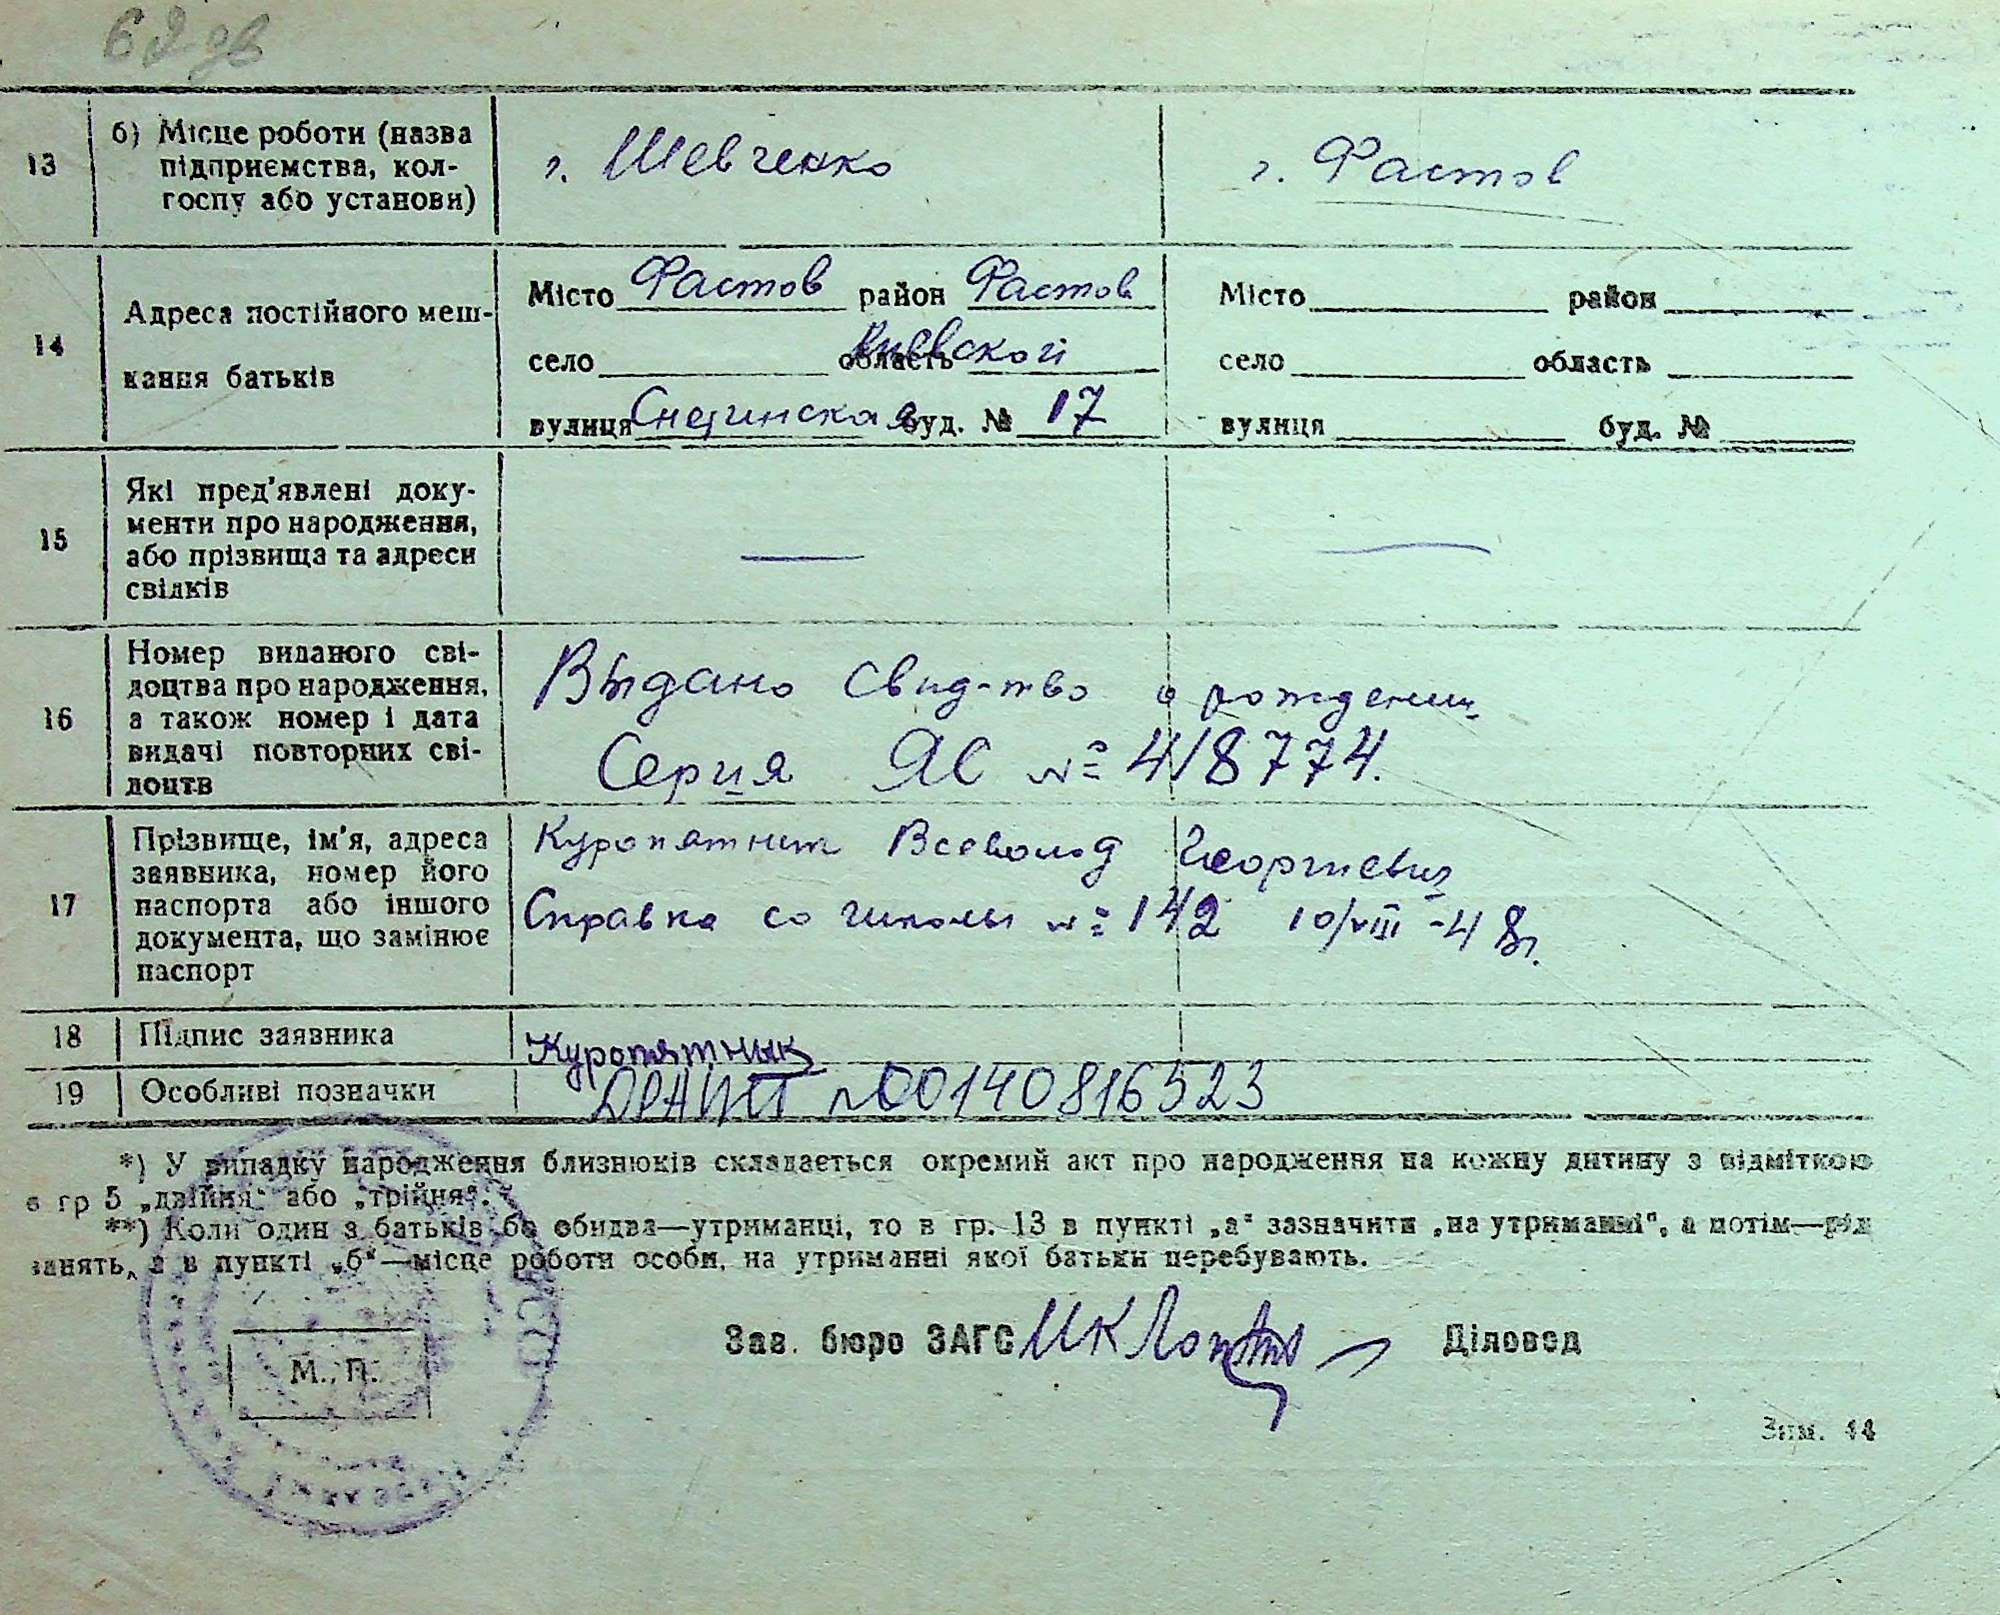 13
б) Місце роботи (назва
підприємства, кол-
госпу або установи)
г. Шевченко
г. Фастов
14
Адреса постійного меш-
кання батьків
Місто Фастов район Фастов
село область Киевской
вулиця буд. № 17
Місто район
село область
вулиця буд. №
15
Які пред'явлені доку-
менти про народження,
або прізвища та адреси
свідків
16
Номер виданого сві-
доцтва про народження,
а також номер і дата
видачі повторних сві-
доцтв
Выдано свид-тво о рождении
Серия ЯС № 418774.
17
Прізвище, ім'я, адреса
заявника, номер його
паспорта або іншого
документа, що замінює
паспорт
Куропятник Всеволод Георгиевич
Справка со школы № 142 10/VIII-48г.
18
Підпис заявника
Куропятник
19
Особливі позначки
ДРАЦСГ №00140816523
*) У випадку народження близнюків складається окремий акт про народження на кожну дитину з відміткою
в гр 5 „двійня" або „трійня".
**) Коли один з батьків бо обидва—утриманці, то в гр. 13 в пункті „а" зазначити „на утриманні", а потім—рід
занять, а в пункті „б"—місце роботи особи, на утриманні якої батьки перебувають.
Зав. бюро ЗАГС
Діловод
М. П.
Зим. 44